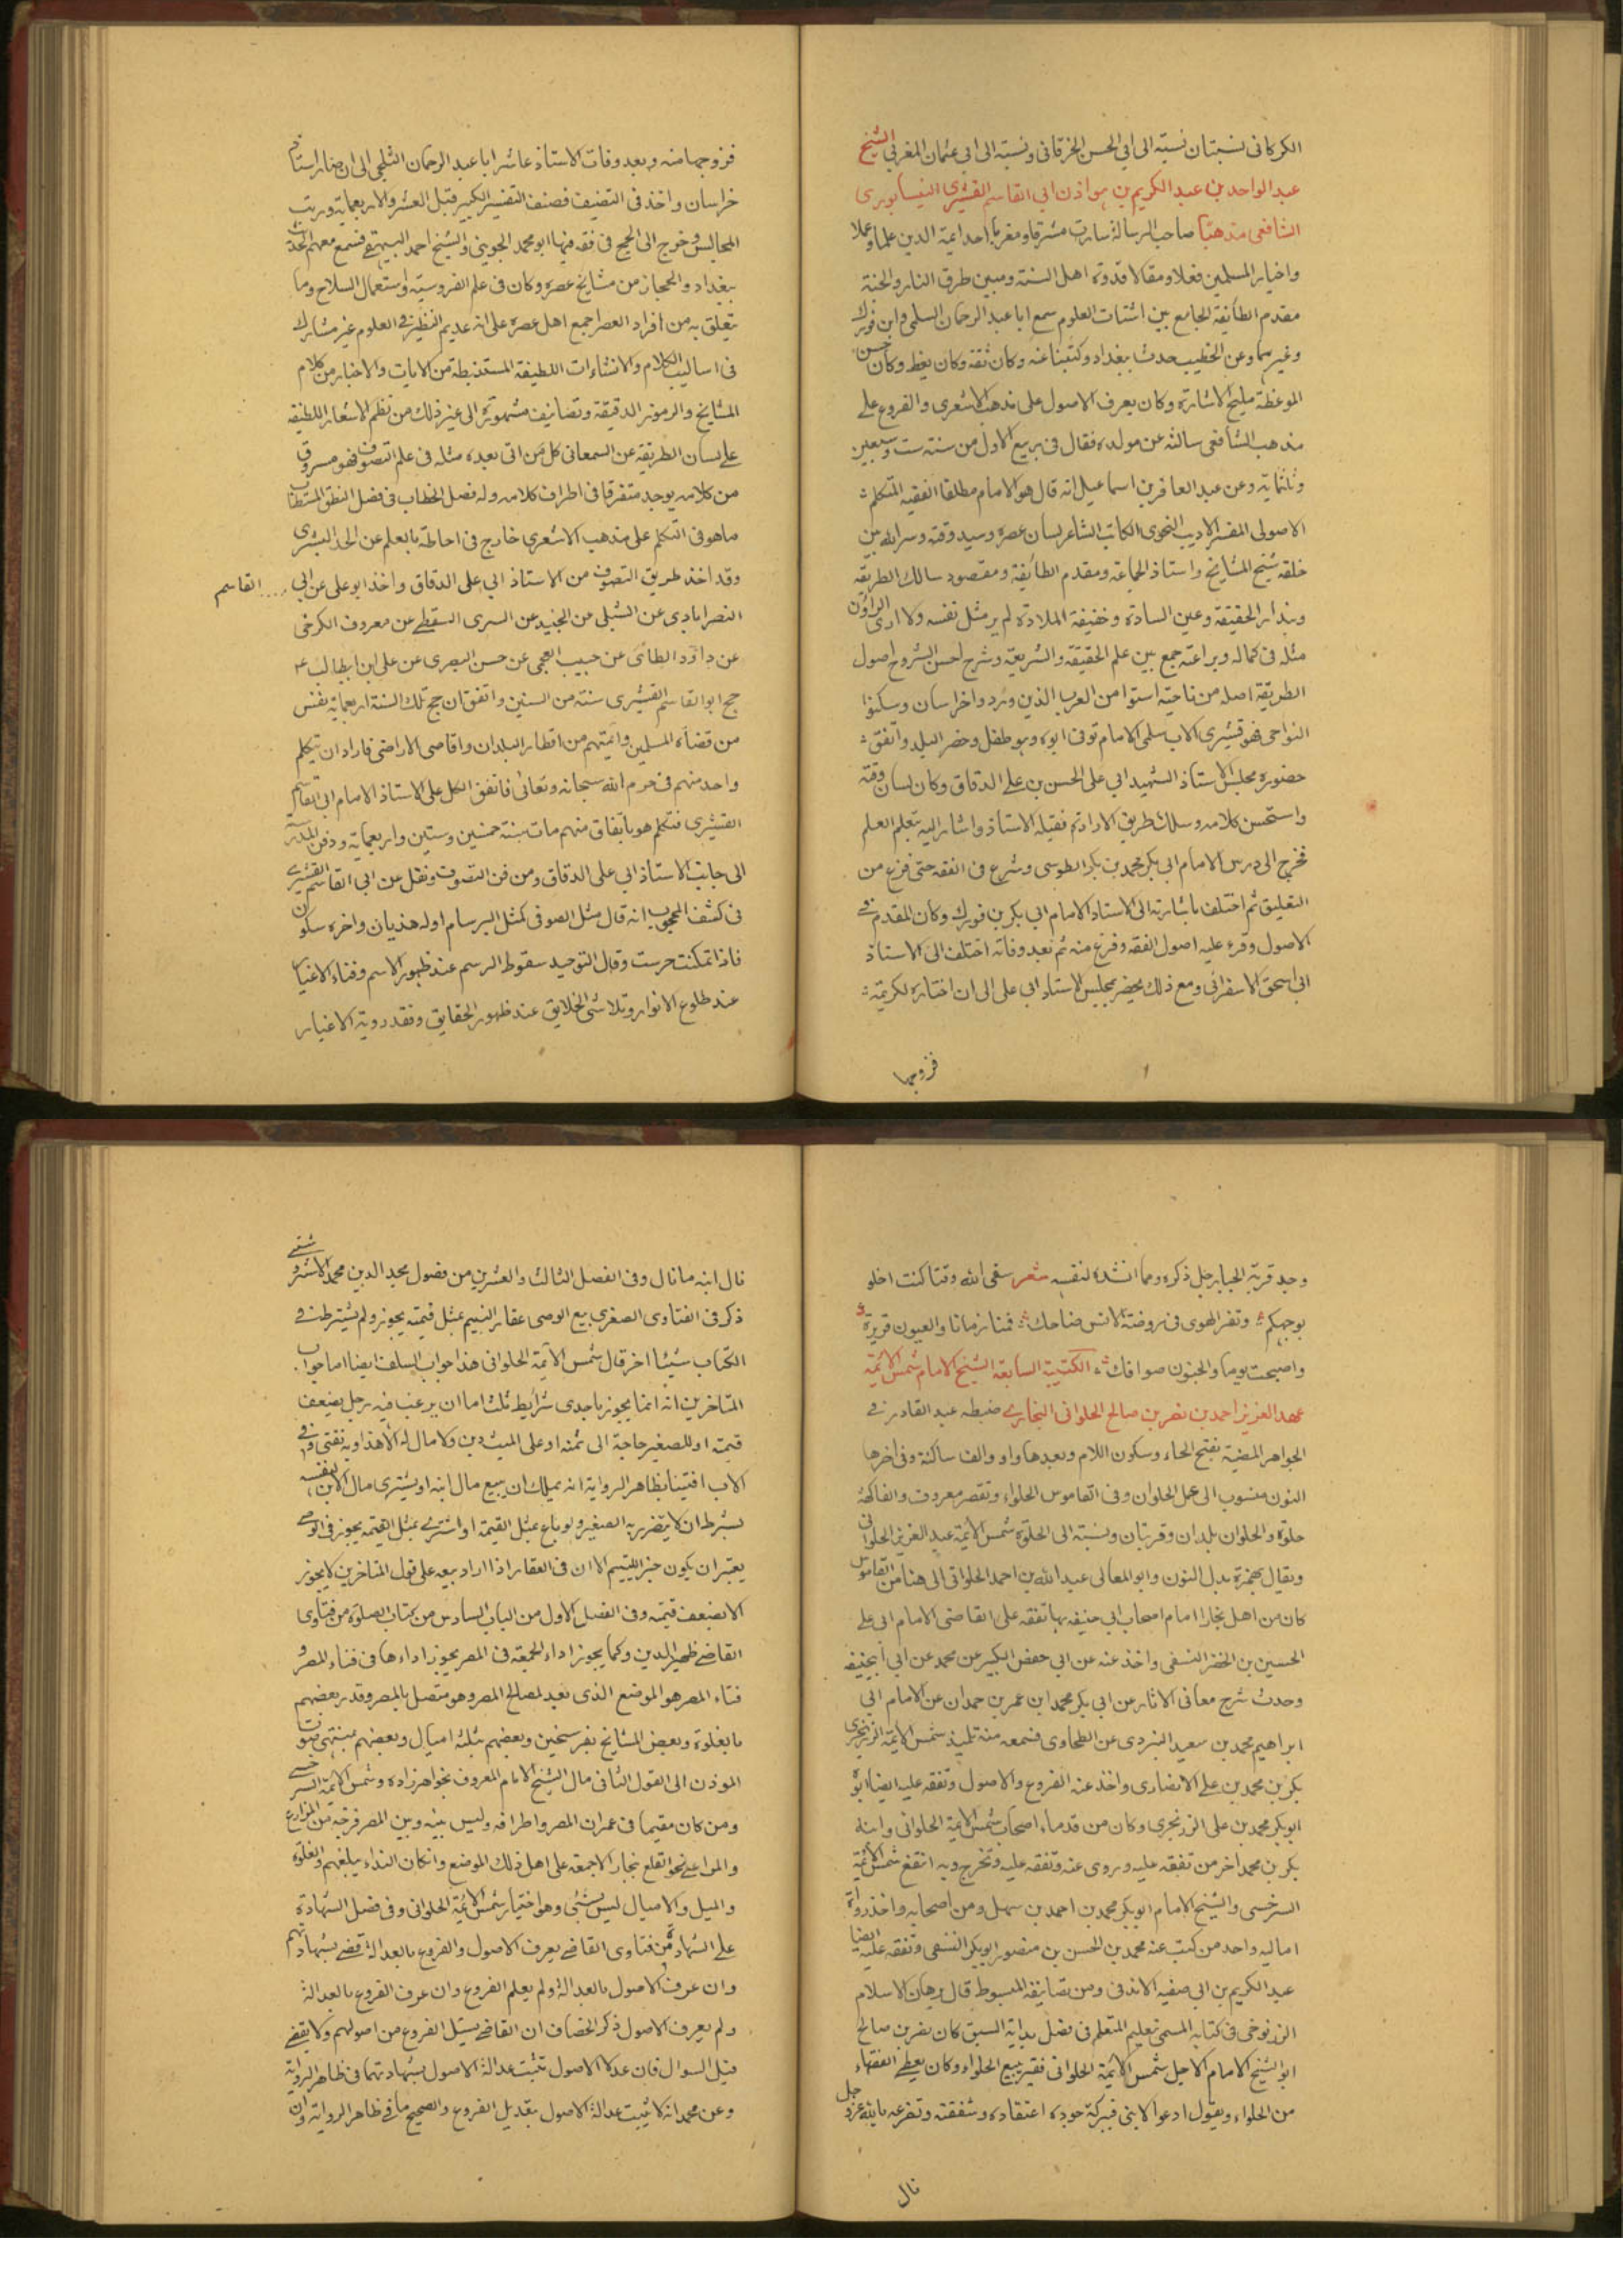 الكركانى نسبتان نسبته الى ابى الحسن الخرقانى ونسبته الى ابى عثمان المغربى الشيخ
عبد الواحد بن عبد الكريم بن هوازن ابى القاسم القشيرى النيسابورى
الشافعى مذهبا صاحب الرسالة سارت مشرقا ومغربا احد ايمة الدين علما وعملا
واخيار المسلمين فعلا ومقالا قدوة اهل السنة ومبين طرق النار والجنة
مقدم الطائفة الجامع بين اشتات العلوم سمع ابا عبد الرحمان السلمى وابن فورك
وغيرهما وعن الخطيب حدث ببغداد وكتبنا عنه وكان ثقة وكان يعظ وكان حسن
الموعظة مليح الاشارة وكان يعرف الاصول على مذهب الاشعرى والفروع على
مذهب الشافعى سالته عن مولده فقال فى ربيع الاول من سنة ست وسبعين
وثلثماية وعن عبد الغافر بن اسماعيل انه قال هو الامام مطلقا الفقيه المتكلم
الاصولى المفسر الاديب النحوى الكاتب الشاعر لسان عصره وسيد وقته وسر الله بين
خلقه شيخ المشايخ واستاذ الجماعة ومقدم الطائفة ومقصود سالك الطريقة
وبندار الحقيقة وعين السادة وحقيقة الملادة لم ير مثل نفسه ولا ارى الراؤن
مثله فى كماله وبراعته جمع بين علم الحقيقة والشريعة وشرح احسن الشروح اصول
الطريقة اصله من ناحية استوا من العرب الذين وردوا خراسان وسكنوا
النواحى فهو قشيرى الاب سلمى الام توفى ابوه وهو طفل وحضر البلد واتفق
حضوره مجلس الاستاذ الشهيد ابى على الحسن بن على الدقاق وكان لسان وقته
واستحسن كلامه وسلك طريق الارادة فقبله الاستاذ واشار اليه بتعلم العلم
فخرج الى درس الامام ابى بكر محمد بن بكر الطوسى وشرع فى الفقه حتى فرغ من
التعليق ثم اختلف باشارته الى الاستاذ الامام ابى بكر بن فورك وكان المقدم فى
الاصول وقرء عليه اصول الفقه وفرغ منه ثم بعد وفاته اختلف الى الاستاذ
ابى اسحق الاسفرائى ومع ذلك يحضر مجلس الاستاد ابى على الى ان اختاره لكريمته
فزوجها
فزوجها منه وبعد وفات الاستاذ عاشر ابا عبد الرحمان السلمى الى ان صار استاذ
خراسان واخذ فى التصنيف فصنف التفسير الكبير قبل العشر والاربعماية ورتب
المجالس وخرج الى الحج فى رفقة فيها ابو محمد الجوينى والشيخ احمد البيهقى فسمع معهم الحديث
ببغداد والحجاز من مشايخ عصره وكان فى علم الفروسية واستعمال السلاح وما
يتعلق به من افراد العصر اجمع اهل عصره على انه عديم النظير فى العلوم غير مشارك
فى اساليب الكلام والانشاءات اللطيفة المستنبطة من الايات والاخبار من كلام
المشايخ والرموز الدقيقة وتصانيف مشهورة الى غير ذلك من نظم الاشعار اللطيفة
على لسان الطريقة عن السمعانى كل من اتى بعده مثله فى علم التصوف فهو مسروق
من كلامه يوجد متفرقا فى اطراف كلامه وله فصل الخطاب فى فضل النطق المستطاب
ماهر فى التكلم على مذهب الاشعرى خارج فى احاطته بالعلم عن الحد البشرى
وقد اخذ طريق التصوف من الاستاذ ابى على الدقاق واخذ ابو على عن ابى ... القاسم
النصرابادى عن الشبلى من الجنيد عن السرى السقطى عن معروف الكرخى
عن داؤد الطائى عن حبيب العجمى عن حسن البصرى عن على ابن ابيطالب
حج ابو القاسم القشيرى سنة من السنين واتفق ان حج تلك السنة اربعماية نفس
من قضاة المسلمين وائمتهم من اقطار البلدان واقاصى الاراضى فاراد ان يتكلم
واحد منهم فى حرم الله سبحانه وتعالى فاتفق الكل على الاستاذ الامام ابى القاسم
القشيرى فتكلم هو باتفاق منهم مات سنة خمسين وستين واربعماية ودفن
الى جانب الاستاذ ابى على الدقاق ومن فن التصوف ونقل عن ابى القاسم القشيرى
فى كشف المحجوب انه قال مثل الصوفى كمثل البرسام اوله هذيان واخره سكون
فاذا تمكنت خرست وقال التوحيد سقوط الرسم عند ظهور الاسم وفناء الاغيار
عند طلوع الانوار وتلاشى الخلايق عند ظهور الحقايق وفقد روية الاغيار
وجد قربة الجبار جل ذكره ومما انشده لنفسه شعر سقى الله وقتا كنت اخلو
بوجهكم وثغر الهوى فى روضة الانس ضاحك فمنا زمانا والعيون قريرة
واصبحت يوما والجفون صوافك الكتيبة السابعة الشيخ الامام شمس الائمة
عبد العزيز احمد بن نصر بن صالح الحلوانى البخارى ضبطه عبد القادر فى
الجواهر المضية بفتح الحاء وسكون اللام وبعدها واو والف ساكنة وفى اخرها
النون منسوب الى عمل الحلوان وفى القاموس الحلواء وتقصر معروف والفاكهة
حلوة والحلوان بلدان وقريتان ونسبته الى الحلاوة شمس الايمة عبد العزيز الحلوانى
ويقال بهمزة بدل النون وابو المعالى عبد الله بن احمد الحلوانى الى هنا من القاموس
كان من اهل بخارا امام اصحاب ابى حنيفه بها تفقه على القاضى الامام ابى على
الحسين بن الخضر النسفى واخذ عنه عن ابى حفص الكبير عن محمد عن ابى ابيحنيفه
وحدث شرح معانى الاثار عن ابى بكر محمد ابن عمر بن حمدان عن الامام ابى
ابراهيم محمد بن سعيد اليزدى عن الطحاوى فسمعه منه تلميذ شمس الايمة الزرنجرى
بكر بن محمد بن على الانصارى واخذ عنه الفروع والاصول وتفقه عليه ايضا ابوه
ابو بكر محمد بن على الزرنجرى وكان من قدماء اصحاب شمس الايمة الحلوانى وابنه
بكر بن محمد اخر من تفقه عليه وروى عنه وتفقه عليه وتخرج وبه انتفع شمس الائمة
السرخسى والشيخ الامام ابو بكر محمد بن احمد بن سهل ومن اصحابه واخذ رواة
اماليه واحد من كتب عنه محمد بن الحسن بن منصور ابو بكر النسفى وتفقه عليه ايضا
عبد الكريم بن ابى صفيه الاندقى ومن تصانيفه المبسوط قال برهان الاسلام
الزرنوخى فى كتابه المسمى تعليم المتعلم فى فصل بداية السبق كان نصر بن صالح
ابو الشيخ الامام الاجل شمس الايمة الحلوانى فقير يبيع الحلواء وكان يعطى الفقهاء
من الحلواء ويقول ادعوا لابنى فببركة جوده اعتقاده وشفقته وتضرعه بالله عز وجل
نال
نال ابنه ما نال وفى الفصل الثالث والعشرين من فصول مجد الدين محمد الاستروشنى
ذكر فى الفتاوى الصغرى بيع الوصى عقار اليتيم بمثل قيمته يجوز ولم يشترط فى
الكتاب شيئا اخر قال شمس الايمة الحلوانى هذا جواب السلف ايضا اما جواب
المتاخرين انه انما يجوز باحدى شرايط ثلث اما ان يرغب فيه رجل بضعف
قيمته او للصغير حاجة الى ثمنه او على الميت دين ولا مال له الا هذا وبه نفتى وفى
الاب افتينا بظاهر الرواية انه يملك ان يبيع مال ابنه او يشترى مال الابن لنفسه
بشرط ان لا يتضرر به الصغير ولو باع بمثل القيمة او اشترى بمثل القيمة يجوز فى الوصى
يعتبر ان يكون خير اليتيم الا ان فى العقار اذا اراد بيعه على قول المتاخرين لا يجوز
الا بضعف قيمته وفى الفصل الاول من الباب السادس من كتاب الصلوة من فتاوى
القاضى ظهير الدين وكما يجوز اداء الجمعة فى المصر يجوز اداءها فى فناء المصر و
فناء المصر هو الموضع الذى يعد لمصالح المصر وهو متصل بالمصر وقدر بعضهم
بالغلوة وبعض المشايخ بفرسخين وبعضهم بثلثة اميال وبعضهم بمنتهى صوت
الموذن الى القول الثانى مال الشيخ الامام المعروف بخواهرزاده وشمس الائمة السرخسى
ومن كان مقيما فى عمران المصر واطرافه وليس بينه وبين المصر فرجة من المزارع
والمراعى نحو القلع ببخارا لاجمعة على اهل ذلك الموضع وان كان النداء يبلغهم والغلوة
والميل والاميال ليس بشئى وهو اختيار شمس الايمة الحلوانى وفى فصل الشهادة
على الشهادة من فتاوى القاضى يعرف الاصول والفروع بالعدالة قضى بشهادتهم
وان عرف الاصول بالعدالة ولم يعلم الفروع وان عرف الفروع بالعدالة
ولم يعرف الاصول ذكر الخصاف ان القاضى يسئل الفروع من اصولهم ولا يقضى
قبل السوال فان عدلا الاصول تثبت عدالة الاصول بشهادتهما فى ظاهر الرواية
وعن محمد انه لا يثبت عدالة الاصول بتعديل الفروع والصحيح ما فى ظاهر الرواية وان